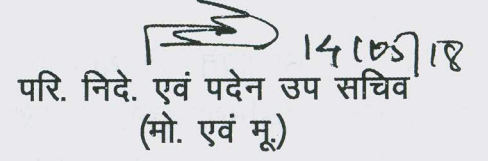 14/05/18
परि. निदे. एवं पदेन उप सचिव
(मो. एवं मू.)